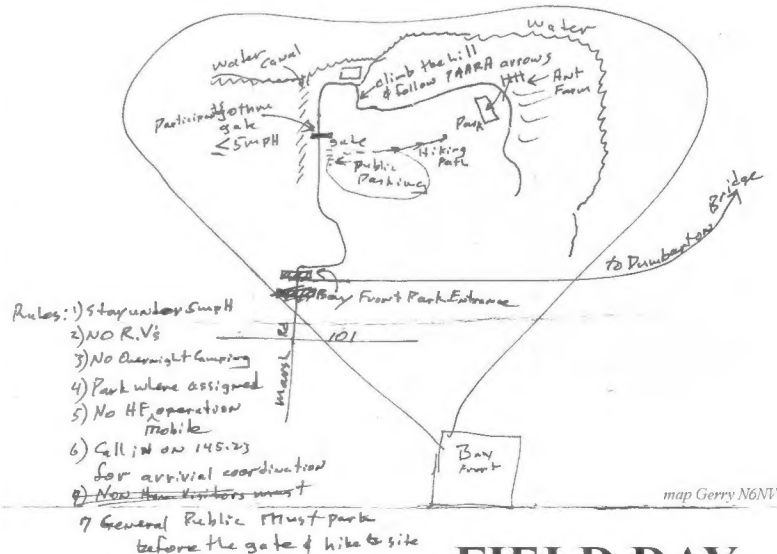 Water
Water
Canal
climb the hill
& follow PAARA arrows
Ant
Farm
Participants
gate
< 5mpH
gate
Park
Hiking
Path
public
Parking
to Dumbarton Bridge
Bay Front Park Entrance
Marsh Rd
101
Rules: 1) Stay under 5mpH
2) NO R.V's
3) NO Overnight Camping
4) Park where assigned
5) No HF operation
mobile
6) Call in on 145.23
for arrivial coordination
7) Non Ham Visitors must
7 General Public Must park
before the gate & hike to site
Bay
Front
map Gerry N6NV
FIELD DAY